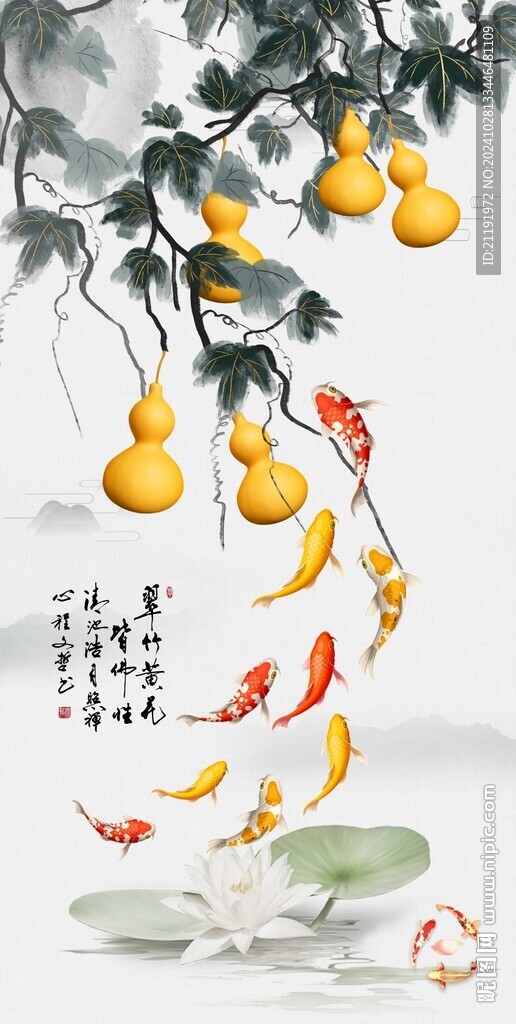 翠竹黄花
皆佛性
清池浩月照禅
心程文哲书
ID:21191972 NO:20241028133446481109
昵图网 www.nipic.com